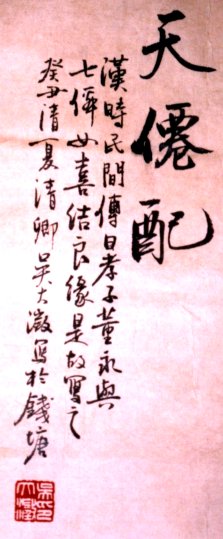 天僊配
漢時民間傳曰孝子董永與
七僊女喜結良緣是故寫之
癸丑清夏清卿吳大澂寫於錢塘
吳印大澂